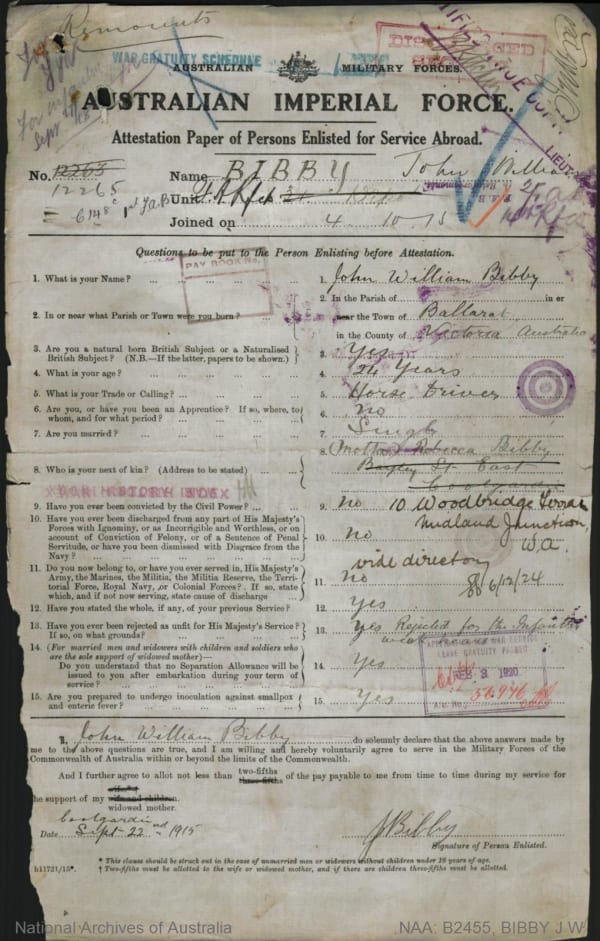 Remounts
WAR GRATUITY SCHEDULE
AUSTRALIAN MILITARY FORCES.
AUSTRALIAN IMPERIAL FORCE.
Attestation Paper of Persons Enlisted for Service Abroad.
No. 12263 Name BIBBY John William
12265 Unit
Joined on 4 10 15
Questions to be put to the Person Enlisting before Attestation.
PAY BOOK No.
1. What is your Name? ... ... ... ... 1. John William Bibby
2. In or near what Parish or Town were you born? ... 2. In the Parish of in or
near the Town of Ballarat
in the County of Victoria Australia
3. Are you a natural born British Subject or a Naturalised
British Subject? (N.B.—If the latter, papers to be shown.) 3. Yes
4. What is your age? ... 4. 24 Years
5. What is your Trade or Calling? ... 5. Horse Driver
6. Are you, or have you been an Apprentice? If so, where, to
whom, and for what period? ... 6. No
7. Are you married? ... 7. Single
8. Who is your next of kin? (Address to be stated) ... 8. Mother Rebecca Bibby
Bayley St. East
Coolgardie
WAR HISTORY INDEX
9. Have you ever been convicted by the Civil Power? ... 9. No
10 Woodbridge Terrace
Midland Junction,
W.A.
vide directory
6/12/24
10. Have you ever been discharged from any part of His Majesty's
Forces with Ignominy, or as Incorrigible and Worthless, or on
account of Conviction of Felony, or of a Sentence of Penal
Servitude, or have you been Dismissed with Disgrace from the
Navy? ... 10. No
11. Do you now belong to, or have you ever served in, His Majesty's
Army, the Marines, the Militia, the Militia Reserve, the Terri-
torial Force, Royal Navy, or Colonial Forces? If so, state
which, and if not now serving, state cause of discharge 11. No
12. Have you stated the whole, if any, of your previous Service? 12. Yes
13. Have you ever been rejected as unfit for His Majesty's Service?
If so, on what grounds? 13. Yes Rejected for the Infantry
14. (For married men and widowers with children and soldiers who
are the sole support of widowed mother)—
Do you understand that no Separation Allowance will be
issued to you after embarkation during your term of
service? ... 14. Yes
LEAVE GRATUITY
1920
15. Are you prepared to undergo inoculation against smallpox
and enteric fever? ... 15. Yes
I, John William Bibby do solemnly declare that the above answers made by
me to the above questions are true, and I am willing and hereby voluntarily agree to serve in the Military Forces of the
Commonwealth of Australia within or beyond the limits of the Commonwealth.
And I further agree to allot not less than two-fifths three-fifths of the pay payable to me from time to time during my service for
the support of my wife and children.
widowed mother.
Coolgardie
Date Sept 22nd 1915
J Bibby
Signature of Person Enlisted.
h11721/15*.
* This clause should be struck out in the case of unmarried men or widowers without children under 18 years of age.
† Two-fifths must be allotted to the wife or widowed mother, and if there are children three-fifths must be allotted.
National Archives of Australia
NAA: B2455, BIBBY J W